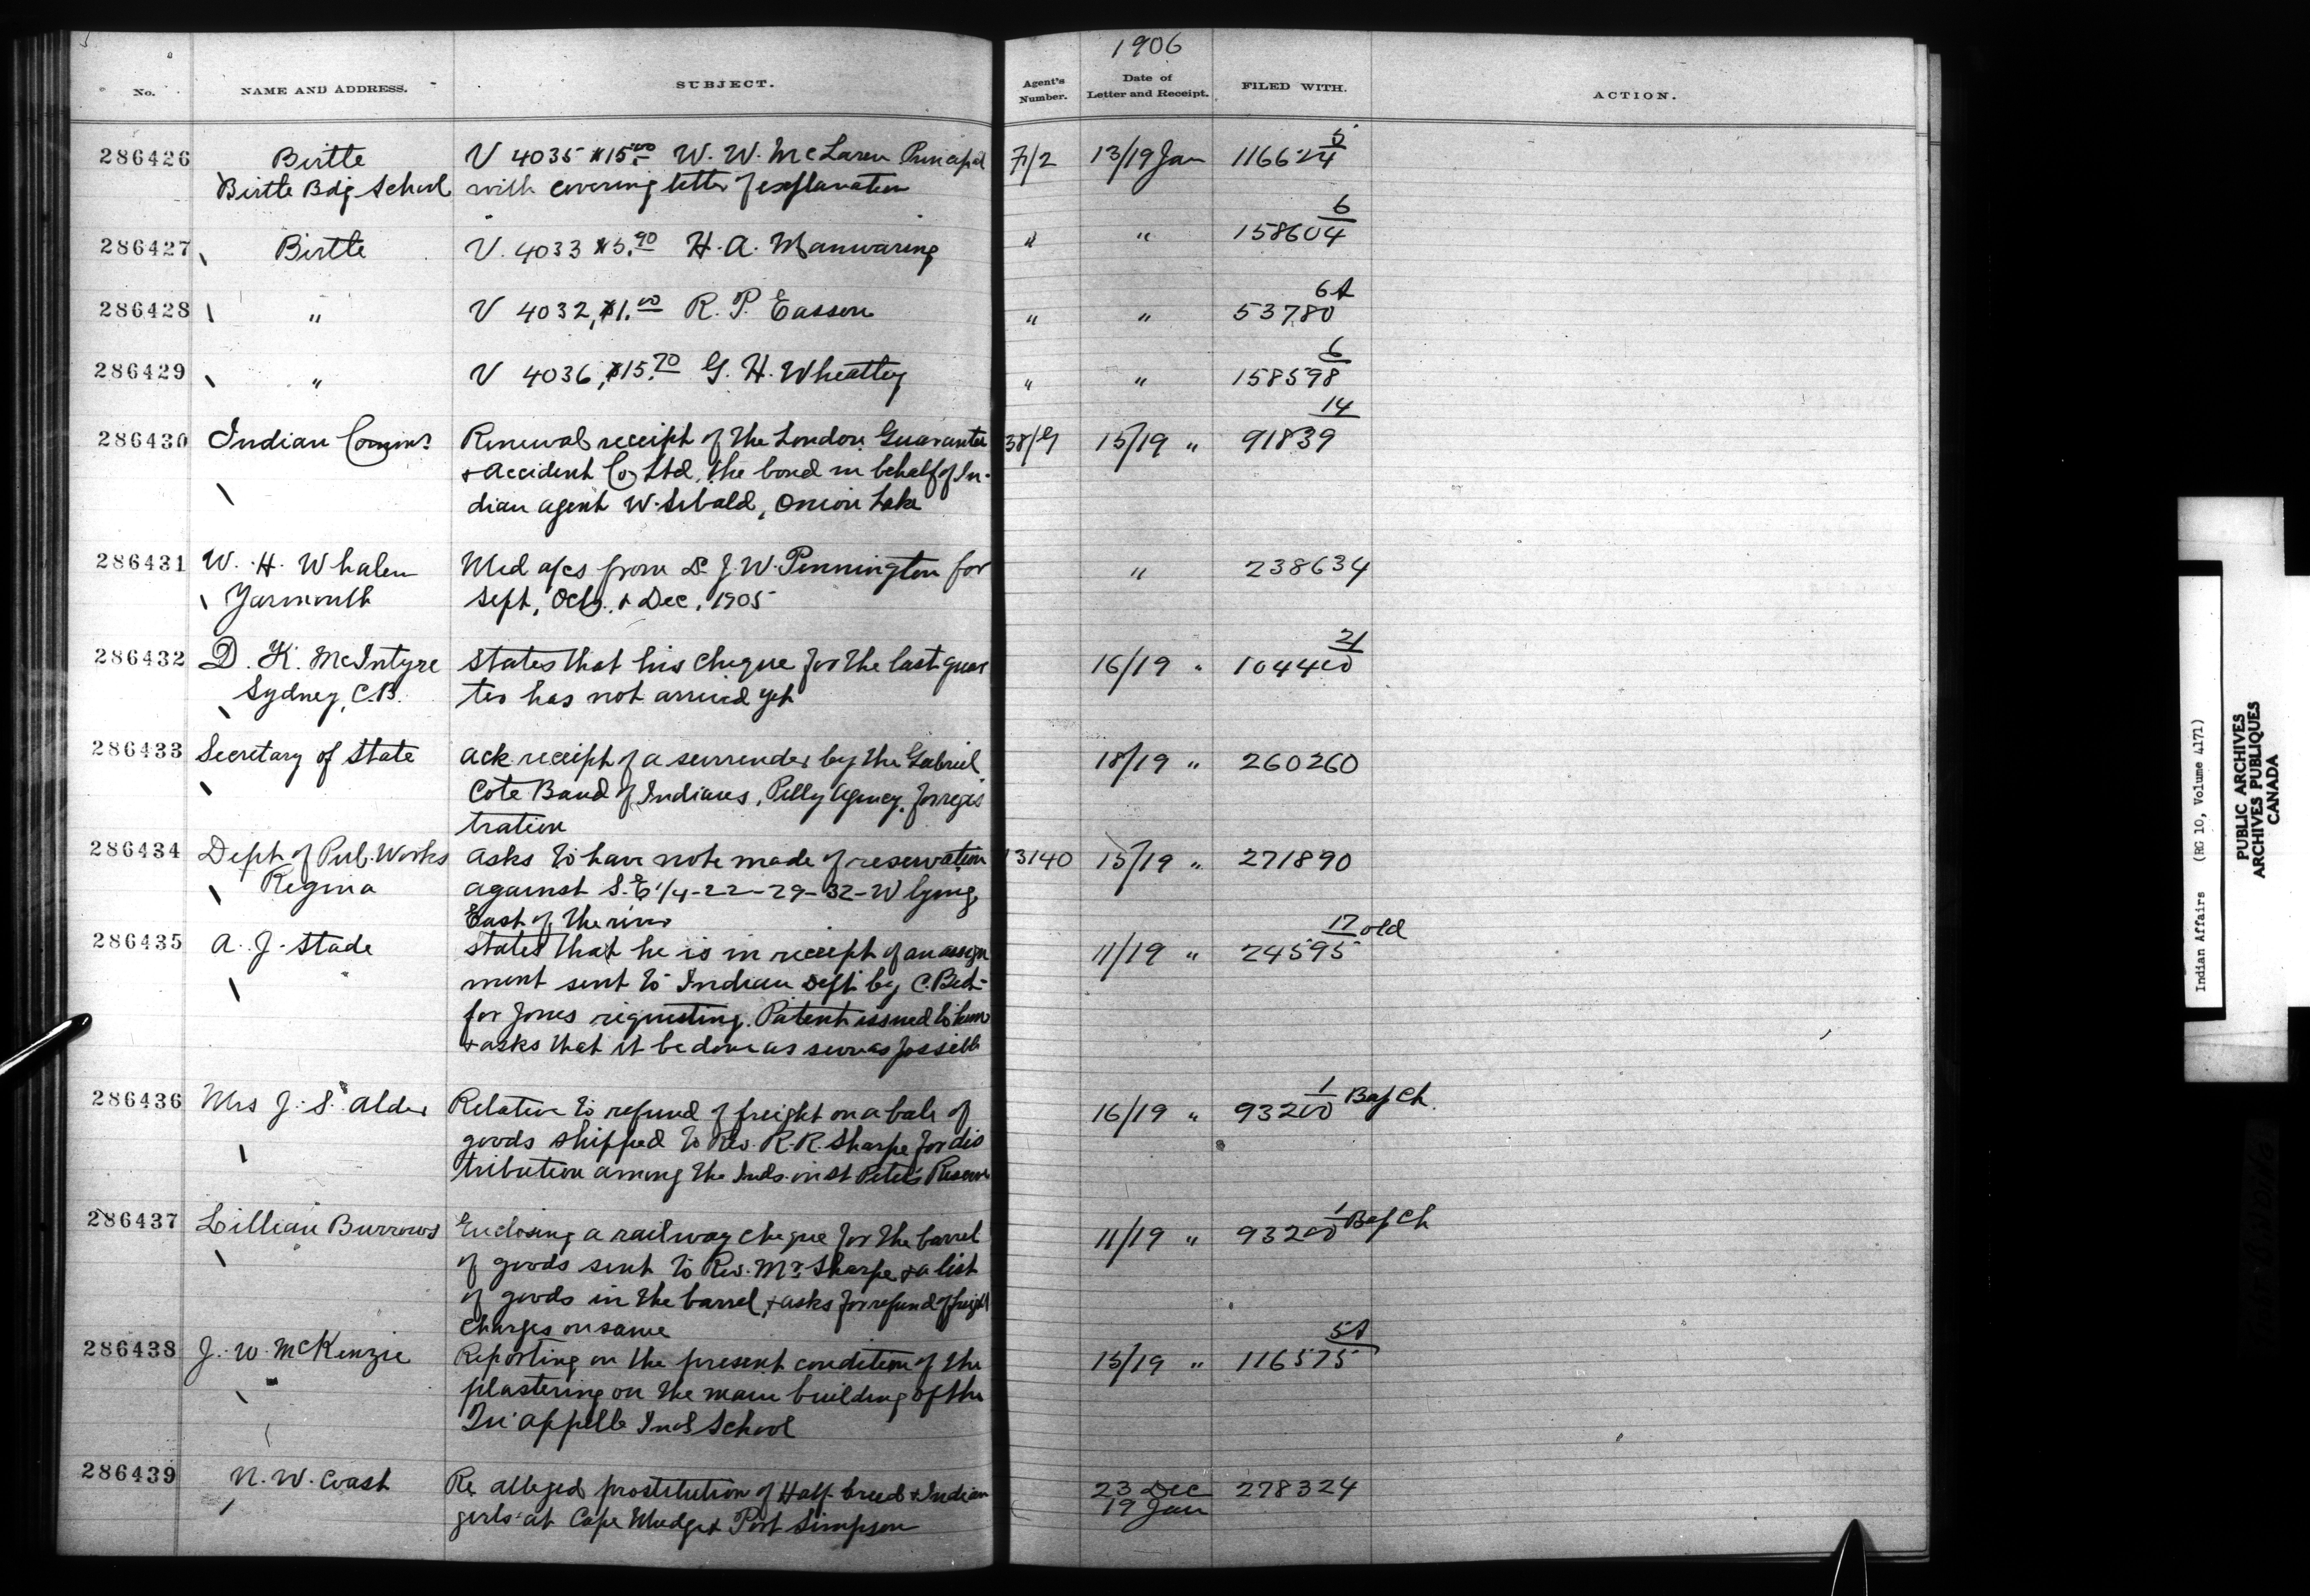 1906
No. NAME AND ADDRESS. SUBJECT. Agent's Number. Date of Letter and Receipt. FILED WITH. ACTION.
286426 Birtle V 4035 $15.00 W. W. McLaren Principal 7/2 13/19 Jan 116624 5
Birtle Bdg School with covering letter of explanation
286427 Birtle V. 4033 $3.90 H. A. Manwaring " " 158604 6
286428 " V 4032, $1.00 R. P. Easson " " 53780 6A
286429 " V 4036, $15.70 G. H. Wheatley " " 158598 6
286430 Indian Commr Renewal receipt of the London Guarantee 38/G 15/19 " 91839 14
& Accident Co Ltd, the bond in behalf of In-
dian agent W. Sibald, Onion Lake
286431 W. H. Whalen Med a/cs from Dr J. W. Pennington for " 238634
Yarmouth Sept, Oct, & Dec, 1905
286432 D. K. McIntyre States that his cheque for the last quar 16/19 " 104400 21
Sydney, C.B. ter has not arrived yet
286433 Secretary of State Ack receipt of a surrender by the Gabriel 18/19 " 260260
Cote Band of Indians, Pelly Agency, for regis
tration
286434 Dept of Pub. Works Asks to have note made of reservation 13140 15/19 " 271890
Regina against S.E 1/4-22-29-32-W lying
East of the river
286435 A. J. Stade States that he is in receipt of an assign 11/19 " 24595 17 old
ment sent to Indian Dept by C. Bed-
for Jones requesting Patent issued to him
& asks that it be done as soon as possible
286436 Mrs J. S. Alder Relative to refund of freight on a bale of 16/19 " 93200 1 Bap Ch.
goods shipped to Rev. R. R. Sharpe for dis
tribution among the Inds. on St Peter's Reserve
286437 Lillian Burrows Enclosing a railway cheque for the barrel 11/19 " 93200 1 Bap Ch
of goods sent to Rev. Mr Sharpe & a list
of goods in the barrel, & asks for refund of freight
charges on same
286438 J. W. McKenzie Reporting on the present condition of the 15/19 " 116575 5A
plastering on the main building of the
Qu'appelle Ind School
286439 N. W. Coast Re alleged prostitution of Half-breed & Indian 23 Dec 278324
girls at Cape Mudge & Port Simpson 19 Jan
Indian Affairs (RG 10, Volume 4171)
PUBLIC ARCHIVES
ARCHIVES PUBLIQUES
CANADA